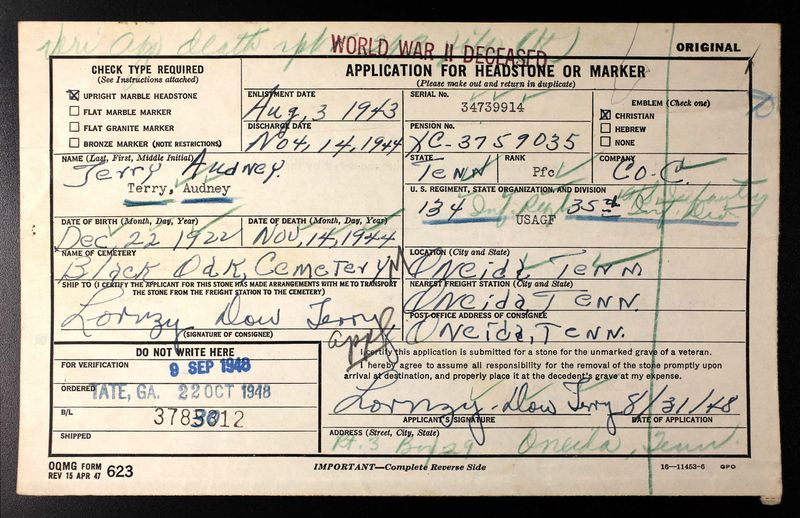 Veri App death
WORLD WAR II DECEASED
ORIGINAL
CHECK TYPE REQUIRED
(See Instructions attached)
☒ UPRIGHT MARBLE HEADSTONE
☐ FLAT MARBLE MARKER
☐ FLAT GRANITE MARKER
☐ BRONZE MARKER (NOTE RESTRICTIONS)
APPLICATION FOR HEADSTONE OR MARKER
(Please make out and return in duplicate)
ENLISTMENT DATE
Aug, 3 1943
DISCHARGE DATE
Nov, 14, 1944
SERIAL No.
34739914
PENSION No.
XC-3759035
EMBLEM (Check one)
☒ CHRISTIAN
☐ HEBREW
☐ NONE
NAME (Last, First, Middle Initial)
Terry Audney
Terry, Audney
STATE
Tenn
RANK
Pfc
COMPANY
Co-C
U. S. REGIMENT, STATE ORGANIZATION, AND DIVISION
134 Inf. Regt. 35th Infantry
USAGF Inf. Div
DATE OF BIRTH (Month, Day, Year)
Dec, 22 1922
DATE OF DEATH (Month, Day, Year)
Nov, 14, 1944
NAME OF CEMETERY
Black Oak, Cemetery
LOCATION (City and State)
Oneida Tenn
SHIP TO (I CERTIFY THE APPLICANT FOR THIS STONE HAS MADE ARRANGEMENTS WITH ME TO TRANSPORT
THE STONE FROM THE FREIGHT STATION TO THE CEMETERY)
NEAREST FREIGHT STATION (City and State)
Oneida Tenn.
Lornzy Dow Terry
(SIGNATURE OF CONSIGNEE)
appl
POST OFFICE ADDRESS OF CONSIGNEE
Oneida, Tenn.
DO NOT WRITE HERE
FOR VERIFICATION
9 SEP 1948
ORDERED
TATE, GA. 22 OCT 1948
B/L
SHIPPED
I certify this application is submitted for a stone for the unmarked grave of a veteran.
I hereby agree to assume all responsibility for the removal of the stone promptly upon
arrival at destination, and properly place it at the decedent's grave at my expense.
Lornzy-Dow Terry 8/31/48
APPLICANT'S SIGNATURE
DATE OF APPLICATION
ADDRESS (Street, City, State)
Rt. 3 Box 29 Oneida, Tenn.
OQMG FORM 623
REV 15 APR 47
IMPORTANT—Complete Reverse Side
16—11453-6 GPO